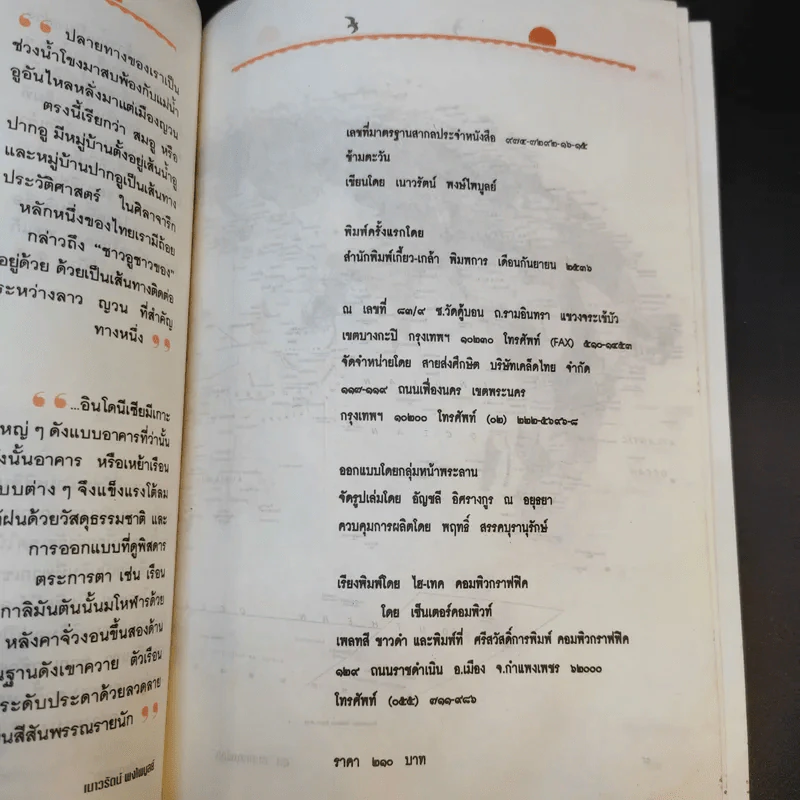 “ ปลายทางของเราเป็น
ช่วงน้ำโขงมาสบพ้องกับแม่น้ำ
อูอันไหลหลั่งมาแต่เมืองญวน
ตรงนี้เรียกว่า สมอู หรือ
ปากอู มีหมู่บ้านตั้งอยู่เส้นน้ำอู
และหมู่บ้านปากอูเป็นเส้นทาง
ประวัติศาสตร์ ในศิลาจาริก
หลักหนึ่งของไทยเรามีถ้อย
กล่าวถึง “ชาวอูชาวของ”
อยู่ด้วย ด้วยเป็นเส้นทางติดต่อ
ระหว่างลาว ญวน ที่สำคัญ
ทางหนึ่ง ”
“ ...อินโดนีเซียมีเกาะ
หญ่ ๆ ดังแบบอาคารที่ว่านั้น
งนั้นอาคาร หรือเหย้าเรือน
บบต่าง ๆ จึงแข็งแรงโต้ลม
ฝนด้วยวัสดุธรรมชาติ และ
การออกแบบที่ดูพิสดาร
ตระการตา เช่น เรือน
กาลิมันตันนั้นมโหฬารด้วย
หลังคาจั่วงอนขึ้นสองด้าน
นฐานดังเขาควาย ตัวเรือน
ระดับประดาด้วยลวดลาย
นสีสันพรรณรายนัก ”
เนาวรัตน์ พงษ์ไพบูลย์
เลขที่มาตรฐานสากลประจำหนังสือ ๙๗๔-๗๒๙๒-๑๖-๑๕
ข้ามตะวัน
เขียนโดย เนาวรัตน์ พงษ์ไพบูลย์
พิมพ์ครั้งแรกโดย
สำนักพิมพ์เกี้ยว-เกล้า พิมพการ เดือนกันยายน ๒๕๓๖
ณ เลขที่ ๘๓/๙ ซ.วัดคู้บอน ถ.รามอินทรา แขวงจระเข้บัว
เขตบางกะปิ กรุงเทพฯ ๑๐๒๓๐ โทรศัพท์ (FAX) ๕๑๐-๑๔๕๓
จัดจำหน่ายโดย สายส่งศึกษิต บริษัทเคล็ดไทย จำกัด
๑๑๗-๑๑๙ ถนนเฟื่องนคร เขตพระนคร
กรุงเทพฯ ๑๐๒๐๐ โทรศัพท์ (๐๒) ๒๒๒-๕๖๙๖-๘
ออกแบบโดยกลุ่มหน้าพระลาน
จัดรูปเล่มโดย อัญชลี อิศรางกูร ณ อยุธยา
ควบคุมการผลิตโดย พฤทธิ์ สรรคบุรานุรักษ์
เรียงพิมพ์โดย ไฮ-เทค คอมพิวกราฟฟิค
โดย เซ็นเตอร์คอมพิวท์
เพลทสี ขาวดำ และพิมพ์ที่ ศรีสวัสดิ์การพิมพ์ คอมพิวกราฟฟิค
๑๒๙ ถนนราชดำเนิน อ.เมือง จ.กำแพงเพชร ๖๒๐๐๐
โทรศัพท์ (๐๕๕) ๗๑๑-๙๘๖
ราคา ๒๑๐ บาท